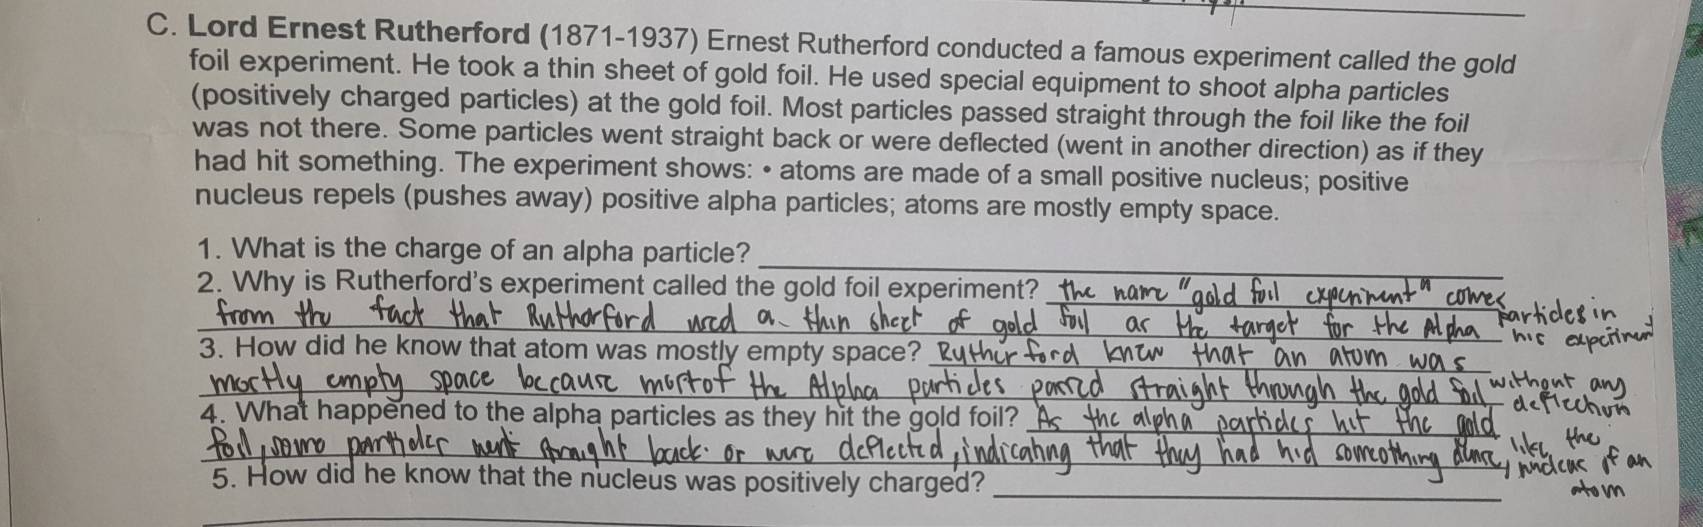 C. Lord Ernest Rutherford (1871-1937) Ernest Rutherford conducted a famous experiment called the gold
foil experiment. He took a thin sheet of gold foil. He used special equipment to shoot alpha particles
(positively charged particles) at the gold foil. Most particles passed straight through the foil like the foil
was not there. Some particles went straight back or were deflected (went in another direction) as if they
had hit something. The experiment shows: • atoms are made of a small positive nucleus; positive
nucleus repels (pushes away) positive alpha particles; atoms are mostly empty space.
1. What is the charge of an alpha particle?
2. Why is Rutherford's experiment called the gold foil experiment? the name "gold foil experiment" comes
from the fact that Rutherford used a thin sheet of gold foil as the target for the Alpha particles in
his experiment
3. How did he know that atom was mostly empty space? Rutherford knew that an atom was
mostly empty space because most of the Alpha particles passed straight through the gold foil without any
deflection
4. What happened to the alpha particles as they hit the gold foil? As the alpha particles hit the gold
foil, some particles went straight back or were deflected, indicating that they had hid something dense, like the
nucleus of an
atom
5. How did he know that the nucleus was positively charged?